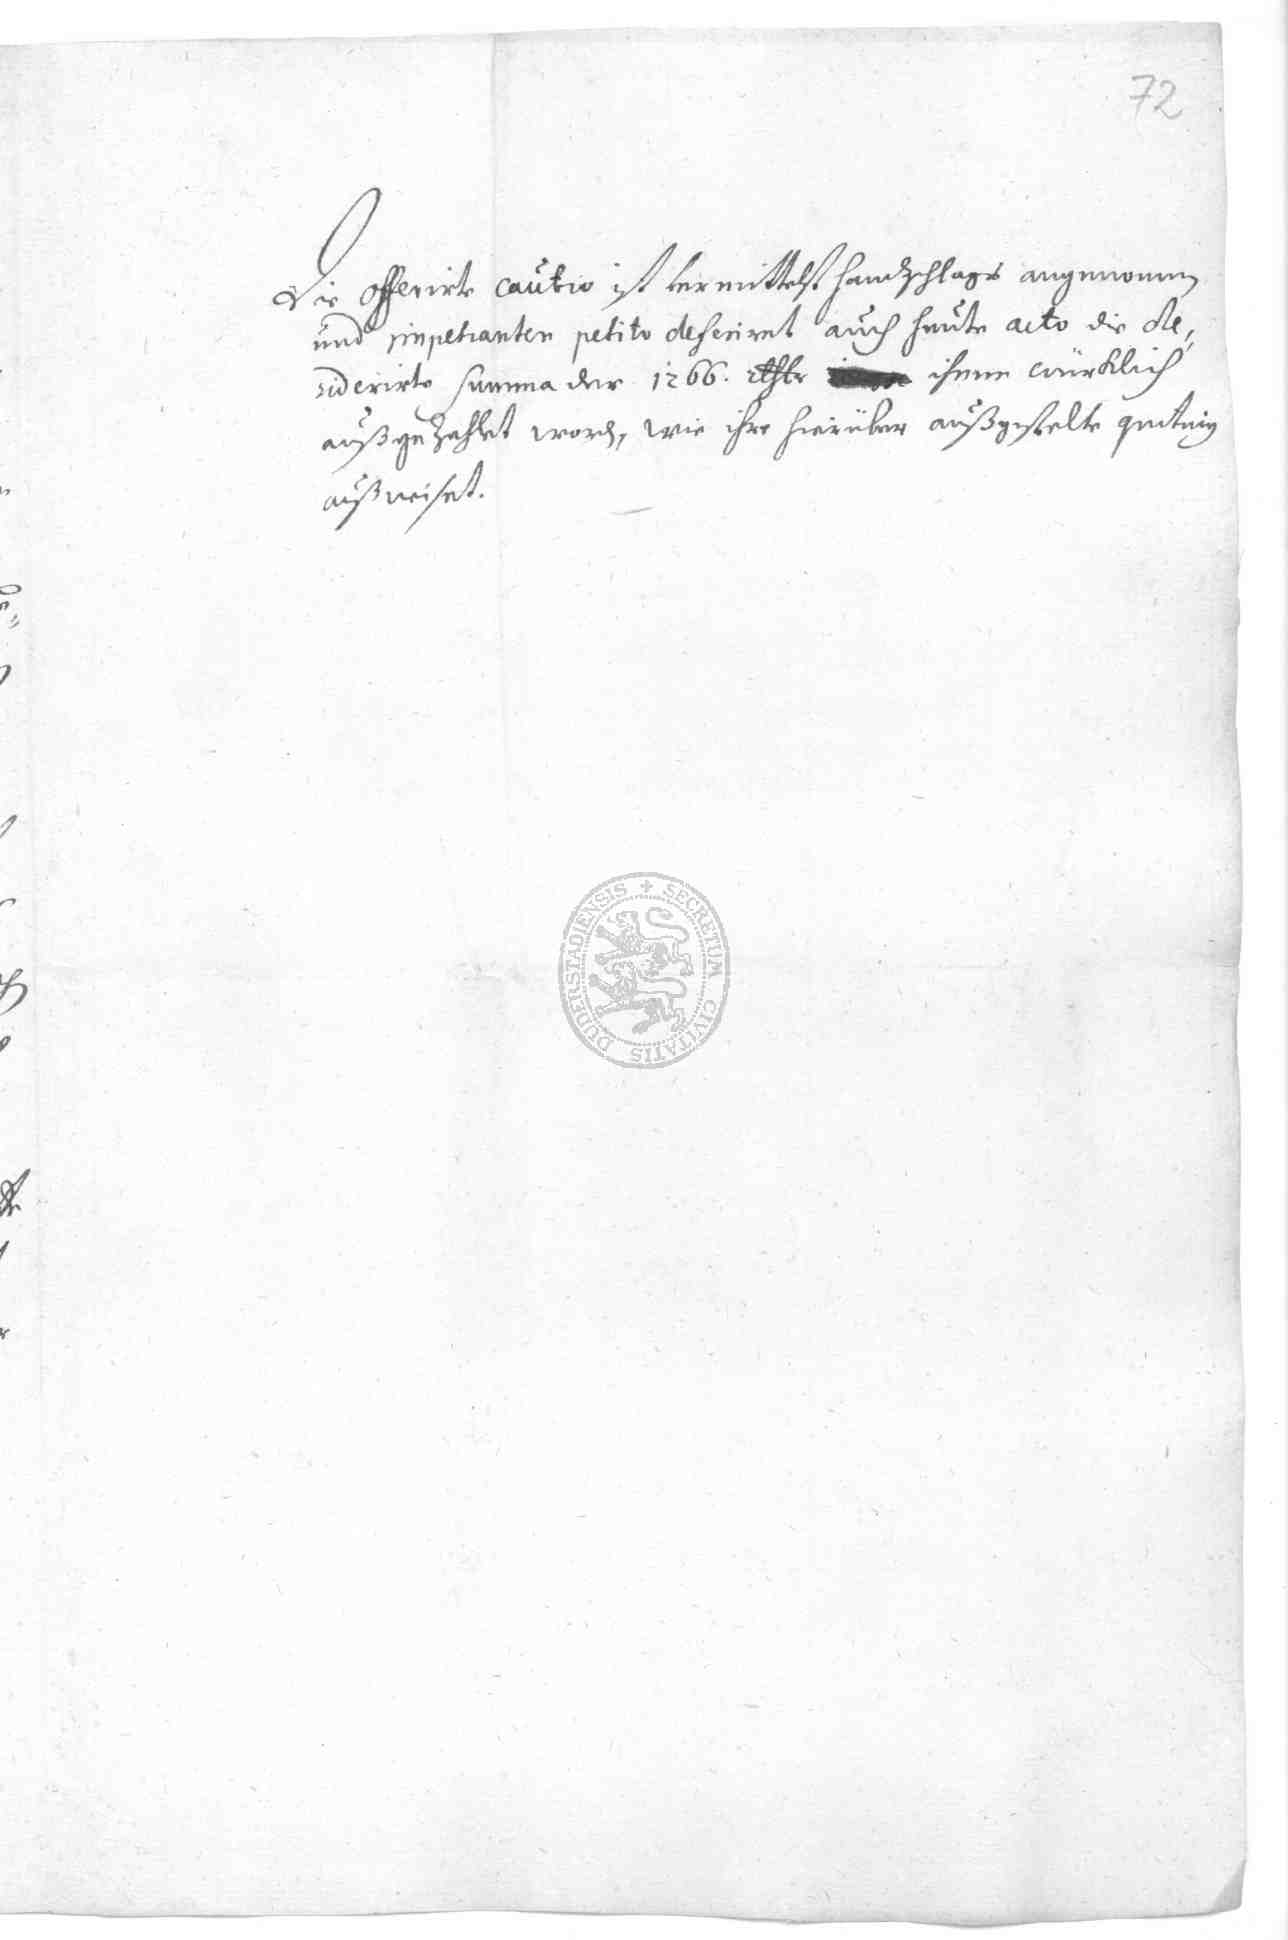 72
Die offerirte cautio ist vermittelst handtschlags angenommen
und impetranten petito deferiret auch heute acto die de,
siderirte summa der 1266. rthlr ihnen würcklich
außgezahlet word, wie ihre hierüber außgestelte quitung
außweiset.
SECRETUM CIVITATIS DUDERSTADIENSIS